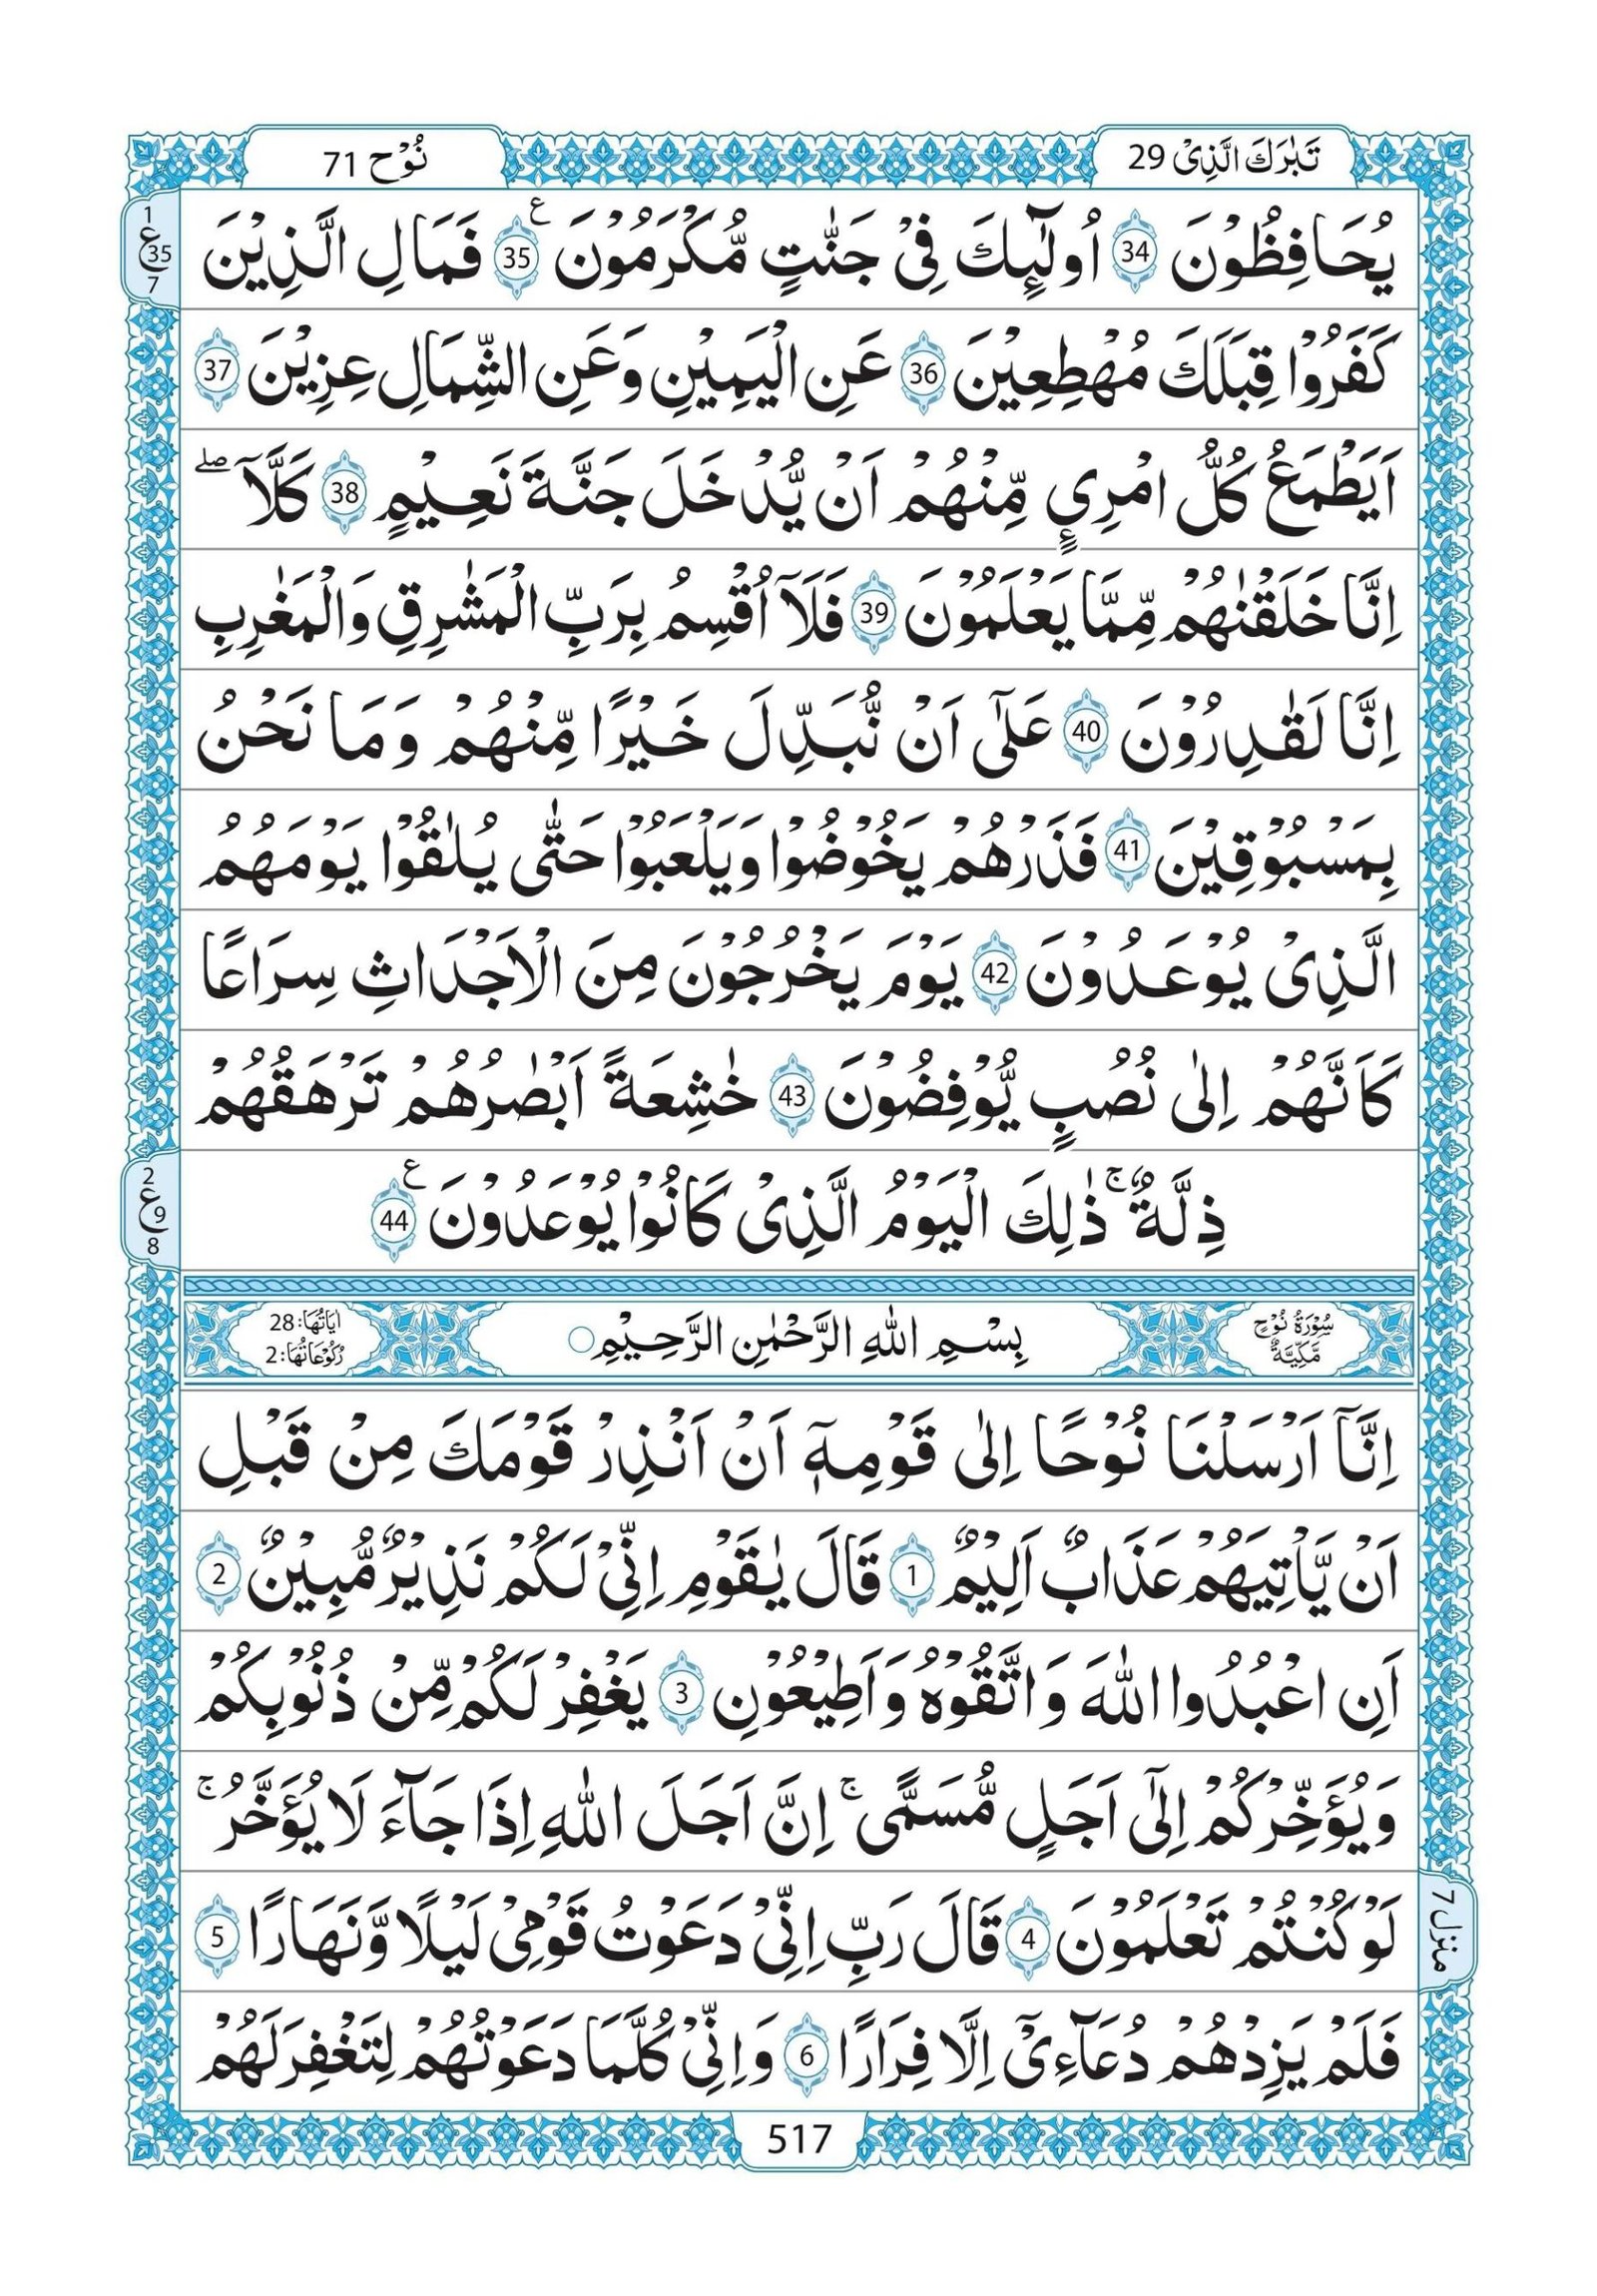 تَبٰرَكَ الَّذِیْ 29
نُوْح 71
یُحَافِظُوْنَ 34 اُولٰٓىِٕكَ فِیْ جَنّٰتٍ مُّكْرَمُوْنَ ۠ 35 فَمَالِ الَّذِیْنَ
1
ع 35
7
كَفَرُوْا قِبَلَكَ مُهْطِعِیْنَ 36 عَنِ الْیَمِیْنِ وَعَنِ الشِّمَالِ عِزِیْنَ 37
اَیَطْمَعُ كُلُّ امْرِئٍ مِّنْهُمْ اَنْ یُّدْخَلَ جَنَّةَ نَعِیْمٍ 38 كَلَّا ؕۖ
اِنَّا خَلَقْنٰهُمْ مِّمَّا یَعْلَمُوْنَ 39 فَلَاۤ اُقْسِمُ بِرَبِّ الْمَشٰرِقِ وَالْمَغٰرِبِ
اِنَّا لَقٰدِرُوْنَ 40 عَلٰۤی اَنْ نُّبَدِّلَ خَیْرًا مِّنْهُمْ وَمَا نَحْنُ
بِمَسْبُوْقِیْنَ 41 فَذَرْهُمْ یَخُوْضُوْا وَیَلْعَبُوْا حَتّٰی یُلٰقُوْا یَوْمَهُمُ
الَّذِیْ یُوْعَدُوْنَ 42 یَوْمَ یَخْرُجُوْنَ مِنَ الْاَجْدَاثِ سِرَاعًا
كَاَنَّهُمْ اِلٰی نُصُبٍ یُّوْفِضُوْنَ 43 خٰشِعَةً اَبْصٰرُهُمْ تَرْهَقُهُمْ
ذِلَّةٌ ۚ ذٰلِكَ الْیَوْمُ الَّذِیْ كَانُوْا یُوْعَدُوْنَ ۠ 44
2
ع 9
8
سُوْرَةُ نُوْحٍ مَّكِّیَّةٌ
بِسْمِ اللّٰهِ الرَّحْمٰنِ الرَّحِیْمِ
اٰیَاتُهَا: 28
رُكُوْعَاتُهَا: 2
اِنَّاۤ اَرْسَلْنَا نُوْحًا اِلٰی قَوْمِهٖۤ اَنْ اَنْذِرْ قَوْمَكَ مِنْ قَبْلِ
اَنْ یَّاْتِیَهُمْ عَذَابٌ اَلِیْمٌ 1 قَالَ یٰقَوْمِ اِنِّیْ لَكُمْ نَذِیْرٌ مُّبِیْنٌ 2
اَنِ اعْبُدُوا اللّٰهَ وَاتَّقُوْهُ وَاَطِیْعُوْنِ 3 یَغْفِرْ لَكُمْ مِّنْ ذُنُوْبِكُمْ
وَیُؤَخِّرْكُمْ اِلٰۤی اَجَلٍ مُّسَمًّی ۚ اِنَّ اَجَلَ اللّٰهِ اِذَا جَآءَ لَا یُؤَخَّرُ ۚ
لَوْ كُنْتُمْ تَعْلَمُوْنَ 4 قَالَ رَبِّ اِنِّیْ دَعَوْتُ قَوْمِیْ لَیْلًا وَّنَهَارًا 5
منزل 7
فَلَمْ یَزِدْهُمْ دُعَآءِیْۤ اِلَّا فِرَارًا 6 وَاِنِّیْ كُلَّمَا دَعَوْتُهُمْ لِتَغْفِرَ لَهُمْ
517